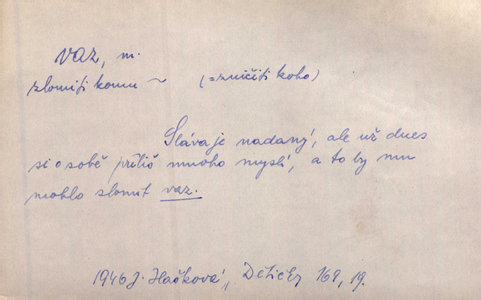 vaz, m.
zlomiti komu ~ (= zničiti koho)
Sláva je nadaný, ale už dnes
si o sobě příliš mnoho myslí, a to by mu
mohlo zlomit vaz.
1946 J. Hašková, 168, 19.